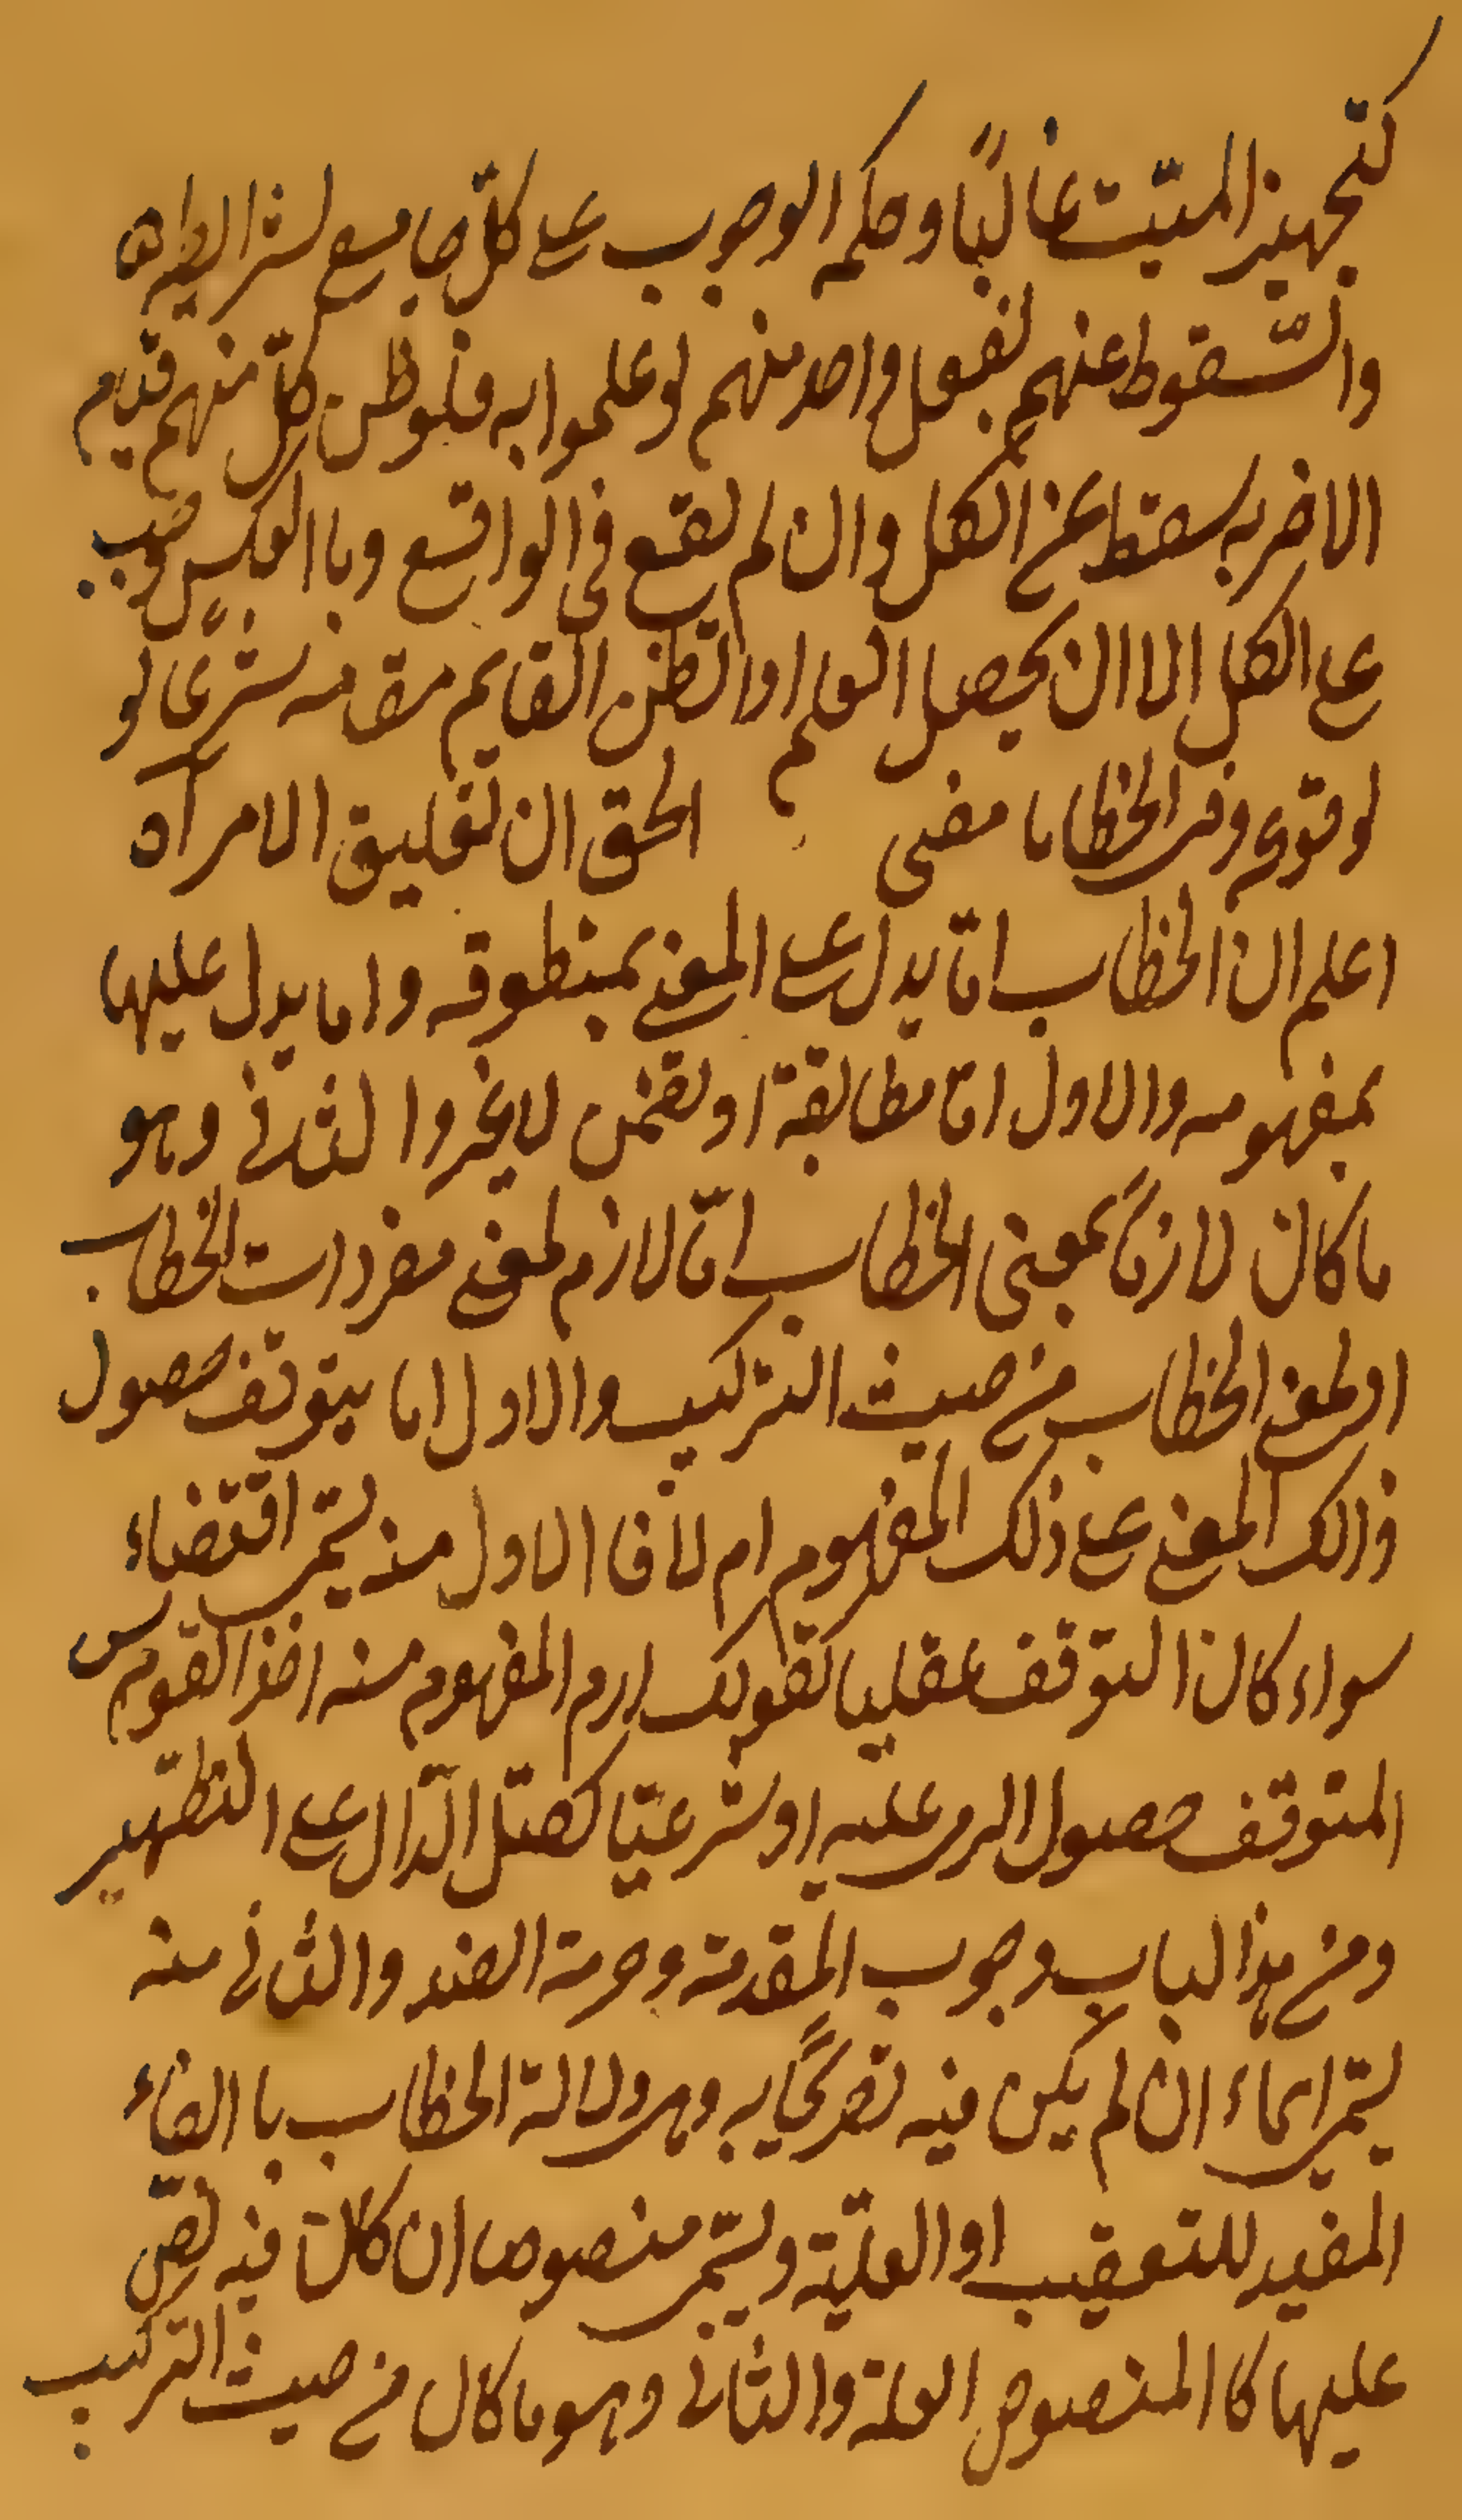 كتجهيز الميّت غالبًا وحكمه الوجوب على كلّ جامع لشرايطه
والسّقوط عنهم بفعل واحد منهم لو علموا به فلو ظن كلّ منهم قيام
الاخر به سقط عن الكل وان لم يقع فى الواقع وباالعكس وجب
على الكل الا ان يحصل العلم او الظن القايم مقامه شرعًا لو
لوقوعه وفى الخطابا مضى الحق ان تعليق الامر آه
اعلم ان الخطاب امّا يدل على المعنى بمنطوقه واما يدل عليها
بمفهومه والاول امّا مطابقة او تضمن لا غير والثانى وهو
ما كان لازمًا بمعنى الخطاب امّا لازم لمعنى مفردات الخطاب
او لمعنى الخطاب من حيث التركيب والاول اما يتوقف حصول
ذالك المعنى على ذلك المفهوم ام لا فا الاول منه يسمّى اقتضاء
سواء كان التوقف عقليا كقولك ارم المفهوم منه اخذ القوس
المتوقف حصول الرمى عليه او شرعيّا كصلّ الدّال على التطهير
ومن هذالباب وجوب المقدمة وحرمة الضد والثانى منه
يسمّى ايماء ان لم يكن فيه تصريحًا به وهى دلالة الخطاب باالفاء
المفيد للتعقيب او العليّة ويسمّى منصوص ان كان فيه نصّ
عليها كا المنصوص العلة والثانى وهو ما كان من حيث التركيب